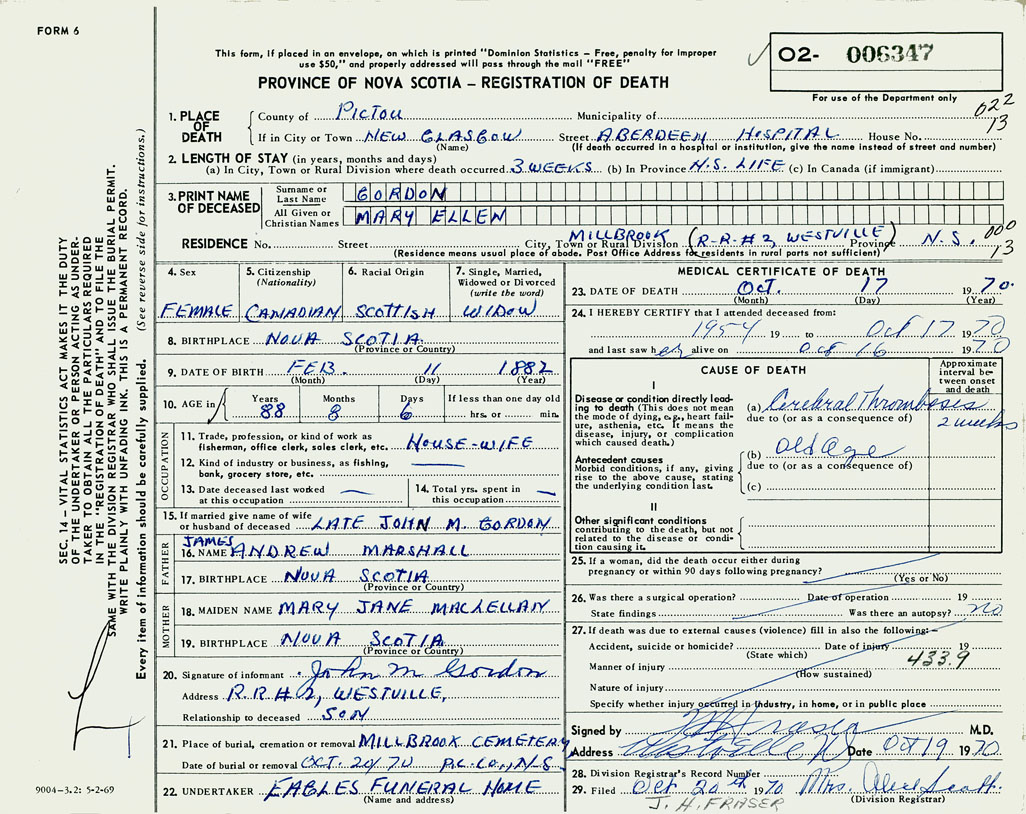 FORM 6
This form, if placed in an envelope, on which is printed "Dominion Statistics – Free, penalty for improper
use $50," and properly addressed will pass through the mail "FREE"
PROVINCE OF NOVA SCOTIA – REGISTRATION OF DEATH
O2- 006347
For use of the Department only
022
13
1. PLACE OF DEATH
County of PICTOU Municipality of
If in City or Town NEW GLASGOW Street ABERDEEN HOSPITAL House No.
(Name) (If death occurred in a hospital or institution, give the name instead of street and number)
2. LENGTH OF STAY (in years, months and days)
(a) In City, Town or Rural Division where death occurred 3 WEEKS (b) In Province N.S. LIFE (c) In Canada (if immigrant)
3. PRINT NAME OF DECEASED
Surname or Last Name GORDON
All Given or Christian Names MARY ELLEN
RESIDENCE No. Street City, Town or Rural Division MILLBROOK (R-R-#2, WESTVILLE) Province N.S.
000
13
(Residence means usual place of abode. Post Office Address for residents in rural parts not sufficient)
4. Sex
FEMALE
5. Citizenship
(Nationality)
CANADIAN
6. Racial Origin
SCOTTISH
7. Single, Married,
Widowed or Divorced
(write the word)
WIDOW
8. BIRTHPLACE NOVA SCOTIA
(Province or Country)
9. DATE OF BIRTH FEB. 11 1882
(Month) (Day) (Year)
10. AGE in Years Months Days If less than one day old
88 8 6 hrs. or min.
OCCUPATION
11. Trade, profession, or kind of work as
fisherman, office clerk, sales clerk, etc. HOUSE-WIFE
12. Kind of industry or business, as fishing,
bank, grocery store, etc.
13. Date deceased last worked
at this occupation
14. Total yrs. spent in
this occupation
15. If married give name of wife
or husband of deceased LATE JOHN M. GORDON
FATHER
JAMES
16. NAME ANDREW MARSHALL
17. BIRTHPLACE NOVA SCOTIA
(Province or Country)
MOTHER
18. MAIDEN NAME MARY JANE MACLELLAN
19. BIRTHPLACE NOVA SCOTIA
(Province or Country)
20. Signature of informant John M Gordon
Address R.R #2, WESTVILLE,
Relationship to deceased SON
21. Place of burial, cremation or removal MILLBROOK CEMETERY
Date of burial or removal OCT. 20/70 P.C. CO., N.S.
22. UNDERTAKER EAGLES FUNERAL HOME
(Name and address)
MEDICAL CERTIFICATE OF DEATH
23. DATE OF DEATH OCT. 17 1970.
(Month) (Day) (Year)
24. I HEREBY CERTIFY that I attended deceased from:
1954 19 to Oct 17 1970
and last saw her alive on Oct 16 1970
CAUSE OF DEATH
Approximate
interval be-
tween onset
and death
I
Disease or condition directly lead-
ing to death (This does not mean
the mode of dying, e.g., heart fail-
ure, asthenia, etc. It means the
disease, injury, or complication
which caused death.)
(a) Cerebral Thrombosis
due to (or as a consequence of)
2 weeks
Antecedent causes
Morbid conditions, if any, giving
rise to the above cause, stating
the underlying condition last.
(b) Old age
due to (or as a consequence of)
(c)
II
Other significant conditions
contributing to the death, but not
related to the disease or condi-
tion causing it.
25. If a woman, did the death occur either during
pregnancy or within 90 days following pregnancy?
(Yes or No)
26. Was there a surgical operation? Date of operation 19
State findings Was there an autopsy? no
27. If death was due to external causes (violence) fill in also the following:–
Accident, suicide or homicide? Date of injury 19
(State which)
433.9
Manner of injury
(How sustained)
Nature of injury
Specify whether injury occurred in industry, in home, or in public place
Signed by Fraser M.D.
Address Westville N Date Oct 19 1970
28. Division Registrar's Record Number
29. Filed Oct 20th 1970 Mrs.
(Division Registrar)
J. H. FRASER
SEC. 14 – VITAL STATISTICS ACT MAKES IT THE DUTY
OF THE UNDERTAKER OR PERSON ACTING AS UNDER-
TAKER TO OBTAIN ALL THE PARTICULARS REQUIRED
IN THE "REGISTRATION OF DEATH" AND TO FILE THE
SAME WITH THE DIVISION REGISTRAR WHO SHALL ISSUE THE BURIAL PERMIT.
WRITE PLAINLY WITH UNFADING INK. THIS IS A PERMANENT RECORD.
Every item of information should be carefully supplied. (See reverse side for instructions.)
9004-3.2: 5-2-69